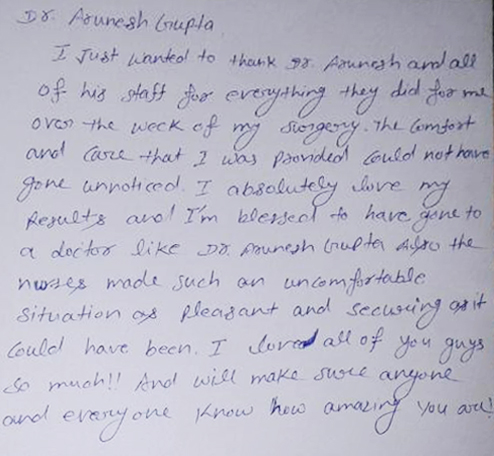 Dr. Arunesh Gupta
I Just wanted to thank Dr. Arunesh and all
of his staff for everything they did for me
over the week of my surgery. The Comfort
and Care that I was Provided Could not have
gone unnoticed. I absolutely love my
Results and I'm blessed to have gone to
a doctor like Dr. Arunesh Gupta Also the
nurses made such an uncomfortable
Situation as Pleasant and Securing as it
Could have been. I loved all of you guys
so much!! And will make sure anyone
and everyone Know how amazing You are!